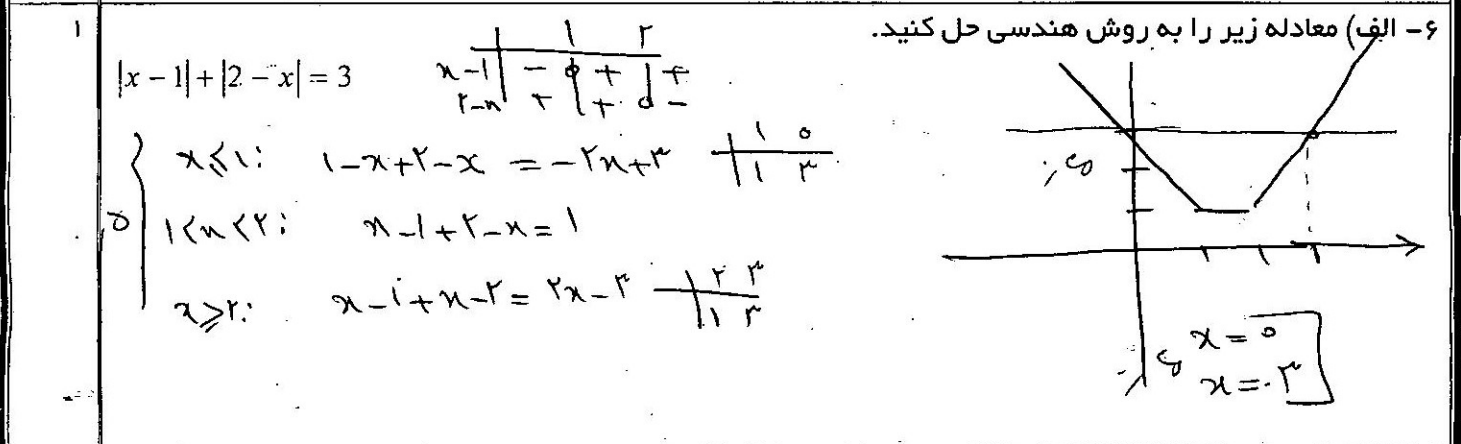 ۶- الف) معادله زیر را به روش هندسی حل کنید.
۱
|x − 1| + |2 − x| = 3
۱ ۲
x-۱ - ० + | +
۲-x + | + ० -
x⩽۱: ۱-x+۲-x = -۲x+۳
۱ ०
۱ ۳
۱<x<۲: x-۱+۲-x=۱
x⩾۲: x-۱+x-۲= ۲x-۳
۲ ۳
۱ ۳
x = ०
x = ۳